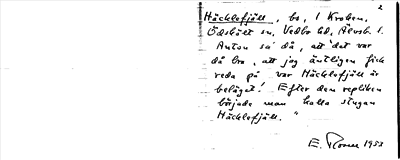 2
Häcklefjäll, bs, i Kroken,
Ödskölt sn, Vedbo hd, Älvsb. l.
Anton sa' då, att "det var
då bra, att jag äntligen fick
reda på var Häcklefjäll är
beläget! Efter den repliken
började man kalla stugan
Häcklefjäll."
E. 1953